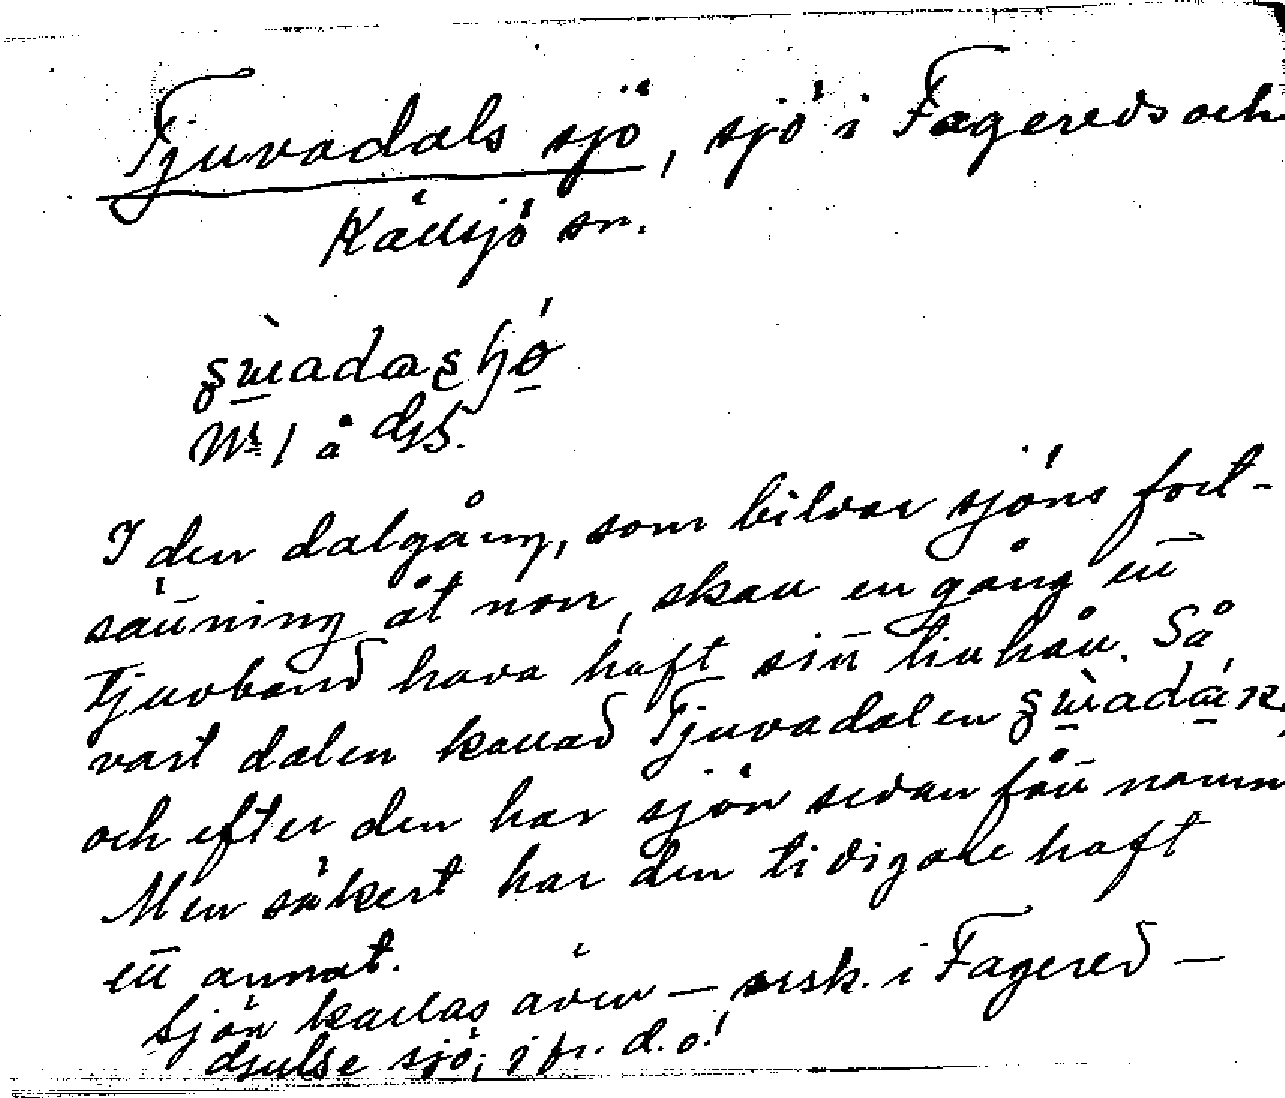 Tjuvadals sjö, sjö i Fagereds och
Källsjö sn.
I den dalgång, som bildar sjöns fort-
sättning åt norr, skall en gång ett
tjuvband hava haft sitt tillhåll. Så
vart dalen kallad Tjuvadalen
och efter den har sjön sedan fått namn
Men säkert har den tidigare haft
ett annat.
Sjön kallas även – särsk. i Fagered –
sjö; jfr. d.o!